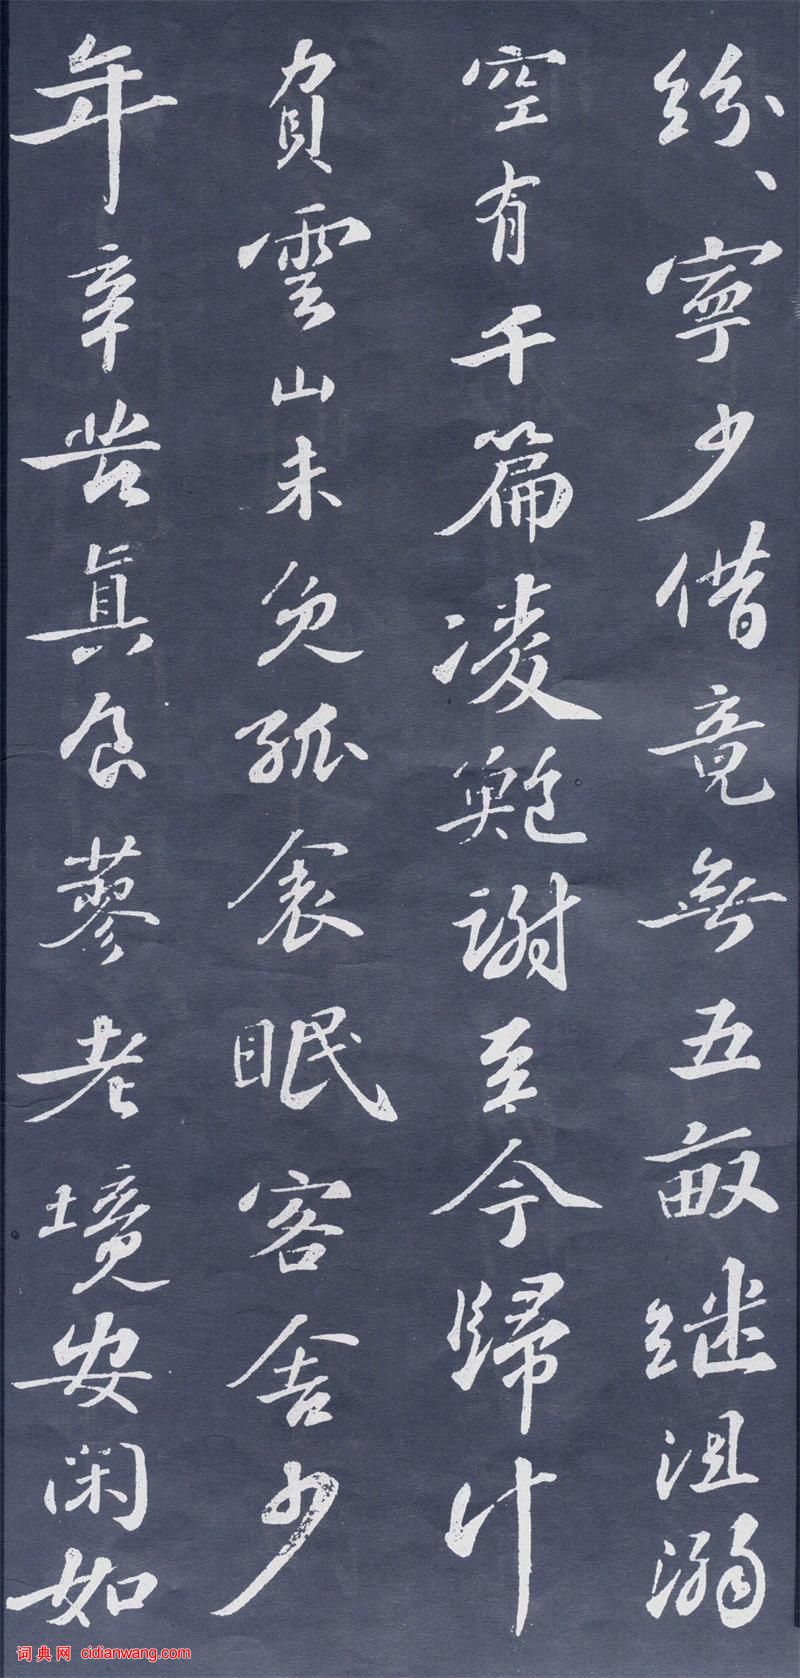 纷、寧少借竟無五畝继沮溺
空有千篇凌鲍謝至今歸计
負雲山未免孤衾眠客舍少
年辛苦真食蓼老境安闲如
词典网 cidianwang.com